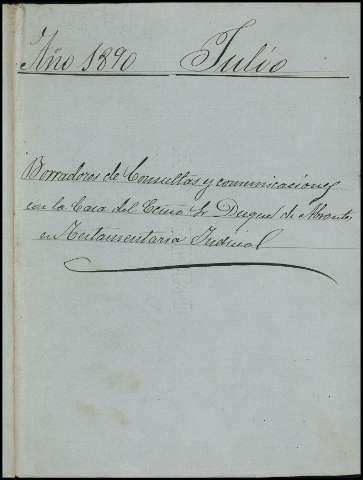 Año 1890 Julio
Borradores de Consultas y comunicaciones
con la Casa del Excmo Sr Duque de Abrantes
en Testamentaria Judicial